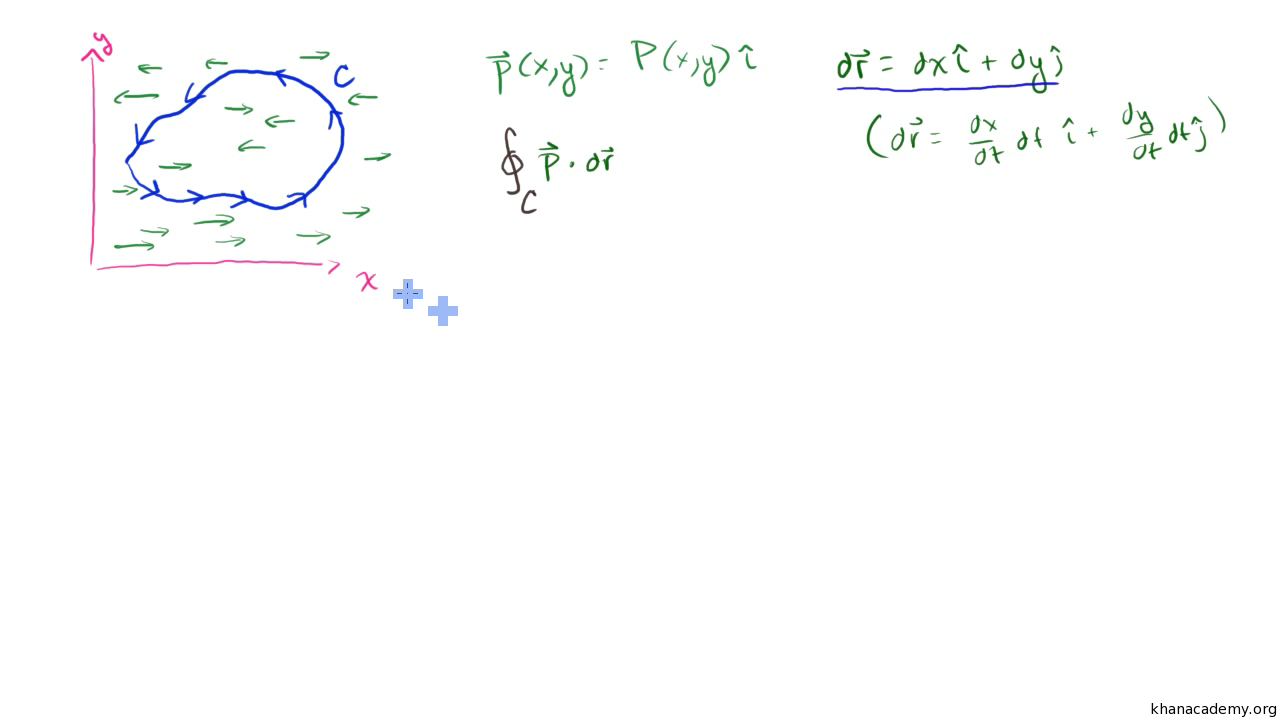 y
C
x
p⃗(x,y) = P(x,y) î
∮ p⃗ · dr⃗
C
dr⃗ = dx î + dy ĵ
(dr⃗ = dx/dt dt î + dy/dt dt ĵ)
khanacademy.org